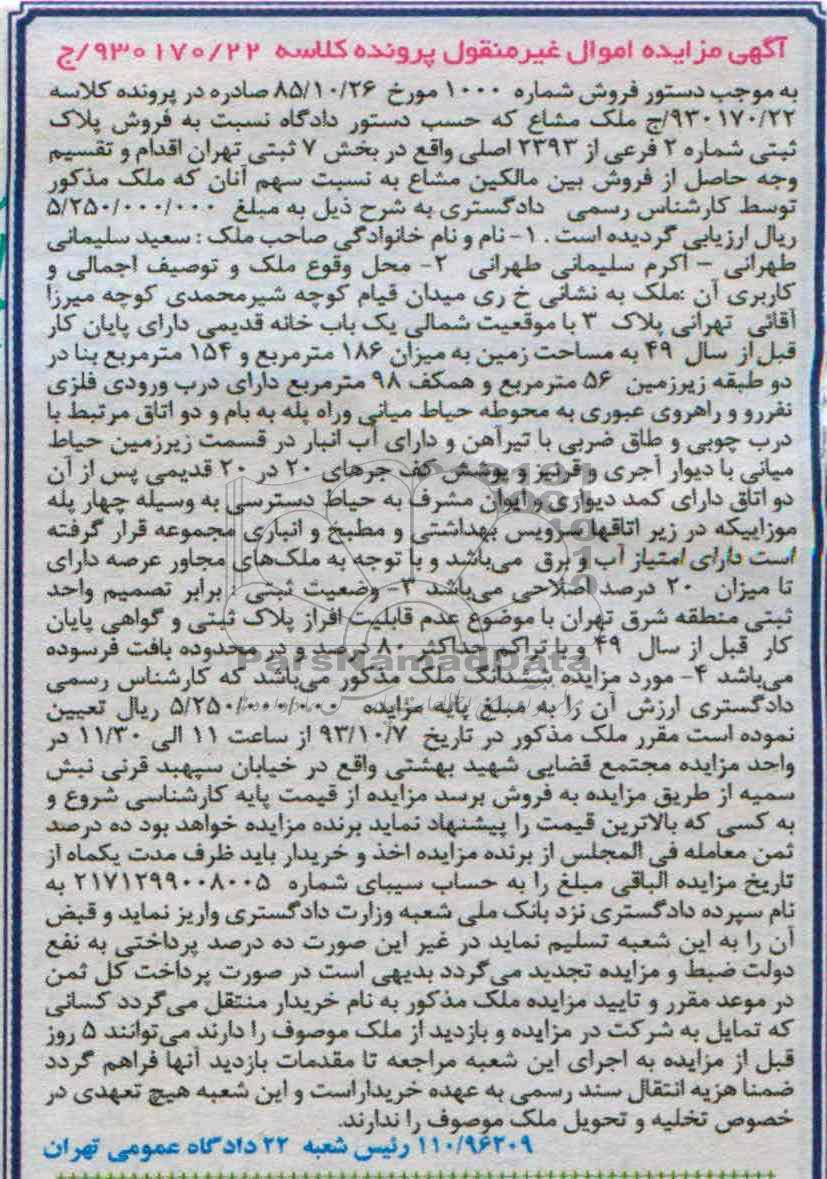 آگهی مزایده اموال غیرمنقول پرونده کلاسه ۹۳۰۱۷۰/۲۲/ج
به موجب دستور فروش شماره ۱۰۰۰ مورخ ۸۵/۱۰/۲۶ صادره در پرونده کلاسه
۹۳۰۱۷۰/۲۲/ج ملک مشاع که حسب دستور دادگاه نسبت به فروش پلاک
ثبتی شماره ۲ فرعی از ۲۳۹۳ اصلی واقع در بخش ۷ ثبتی تهران اقدام و تقسیم
وجه حاصل از فروش بین مالکین مشاع به نسبت سهم آنان که ملک مذکور
توسط کارشناس رسمی دادگستری به شرح ذیل به مبلغ ۵/۲۵۰/۰۰۰/۰۰۰
ریال ارزیابی گردیده است . ۱- نام و نام خانوادگی صاحب ملک : سعید سلیمانی
طهرانی – اکرم سلیمانی طهرانی ۲- محل وقوع ملک و توصیف اجمالی و
کاربری آن :ملک به نشانی خ ری میدان قیام کوچه شیرمحمدی کوچه میرزا
آقائی تهرانی پلاک ۳ با موقعیت شمالی یک باب خانه قدیمی دارای پایان کار
قبل از سال ۴۹ به مساحت زمین به میزان ۱۸۶ مترمربع و ۱۵۴ مترمربع بنا در
دو طبقه زیرزمین ۵۶ مترمربع و همکف ۹۸ مترمربع دارای درب ورودی فلزی
نفررو و راهروی عبوری به محوطه حیاط میانی وراه پله به بام و دو اتاق مرتبط با
درب چوبی و طاق ضربی با تیرآهن و دارای آب انبار در قسمت زیرزمین حیاط
میانی با دیوار آجری و قرنیز و پوشش کف جرهای ۲۰ در ۲۰ قدیمی پس از آن
دو اتاق دارای کمد دیواری و ایوان مشرف به حیاط دسترسی به وسیله چهار پله
موزاییکه در زیر اتاقها سرویس بهداشتی و مطبخ و انباری مجموعه قرار گرفته
است دارای امتیاز آب و برق می‌باشد و با توجه به ملک‌های مجاور عرصه دارای
تا میزان ۲۰ درصد اصلاحی می‌باشد ۳- وضعیت ثبتی : برابر تصمیم واحد
ثبتی منطقه شرق تهران با موضوع عدم قابلیت افراز پلاک ثبتی و گواهی پایان
کار قبل از سال ۴۹ و با تراکم حداکثر ۸۰ درصد و در محدوده بافت فرسوده
ParsNamadData
می‌باشد ۴- مورد مزایده ششدانگ ملک مذکور می‌باشد که کارشناس رسمی
دادگستری ارزش آن را به مبلغ پایه مزایده ۵/۲۵۰/۰۰۰/۰۰۰ ریال تعیین
نموده است مقرر ملک مذکور در تاریخ ۹۳/۱۰/۷ از ساعت ۱۱ الی ۱۱/۳۰ در
واحد مزایده مجتمع قضایی شهید بهشتی واقع در خیابان سپهبد قرنی نبش
سمیه از طریق مزایده به فروش برسد مزایده از قیمت پایه کارشناسی شروع و
به کسی که بالاترین قیمت را پیشنهاد نماید برنده مزایده خواهد بود ده درصد
ثمن معامله فی المجلس از برنده مزایده اخذ و خریدار باید ظرف مدت یکماه از
تاریخ مزایده الباقی مبلغ را به حساب سیبای شماره ۲۱۷۱۲۹۹۰۰۸۰۰۵ به
نام سپرده دادگستری نزد بانک ملی شعبه وزارت دادگستری واریز نماید و قبض
آن را به این شعبه تسلیم نماید در غیر این صورت ده درصد پرداختی به نفع
دولت ضبط و مزایده تجدید می‌گردد بدیهی است در صورت پرداخت کل ثمن
در موعد مقرر و تایید مزایده ملک مذکور به نام خریدار منتقل می‌گردد کسانی
که تمایل به شرکت در مزایده و بازدید از ملک موصوف را دارند می‌توانند ۵ روز
قبل از مزایده به اجرای این شعبه مراجعه تا مقدمات بازدید آنها فراهم گردد
ضمنا هزیه انتقال سند رسمی به عهده خریداراست و این شعبه هیچ تعهدی در
خصوص تخلیه و تحویل ملک موصوف را ندارند.
۱۱۰/۹۶۲۰۹ رئیس شعبه ۲۲ دادگاه عمومی تهران